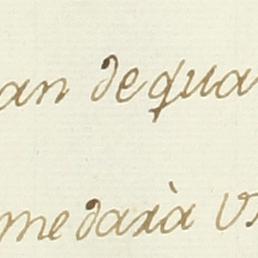 an de qua
me darà V